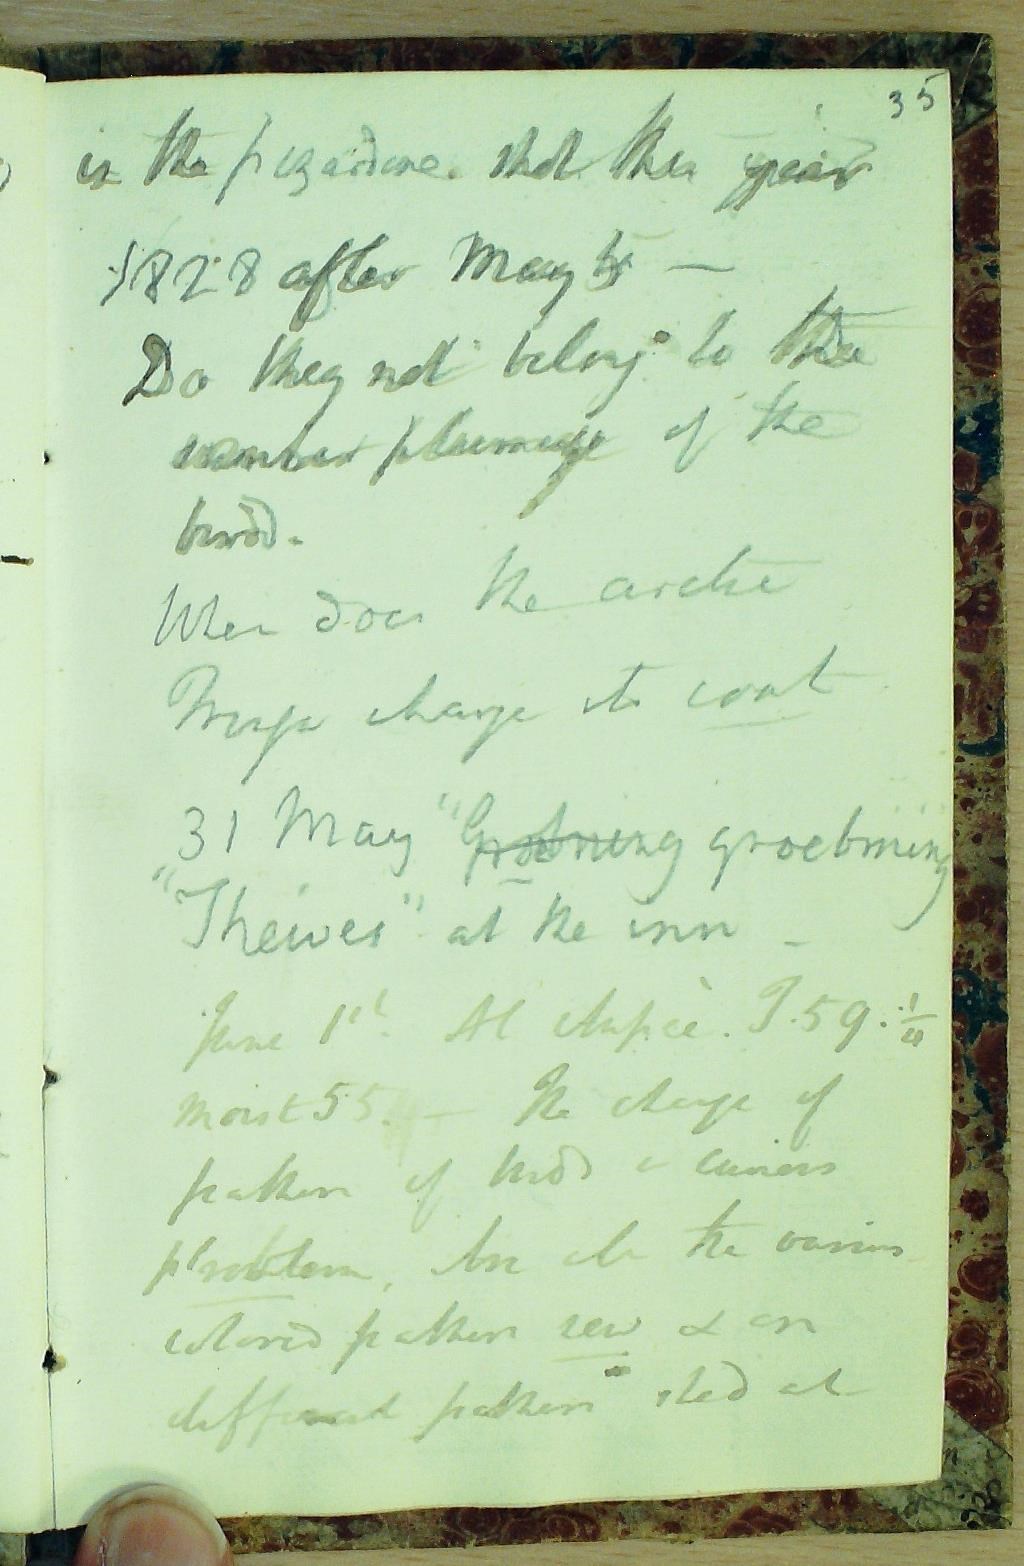 35
in the shot this year
1828 after May 5 —
Do they not belong to the
summer plumage of the
bird.
When does the arctic
change its coat
31 May " groebning
"Theives" at the inn –
June 1st. At . T. 59.
moist 55. — The change of
feathers of birds a curious
problem, Are the various
colored feathers new & are
different feathers shed at